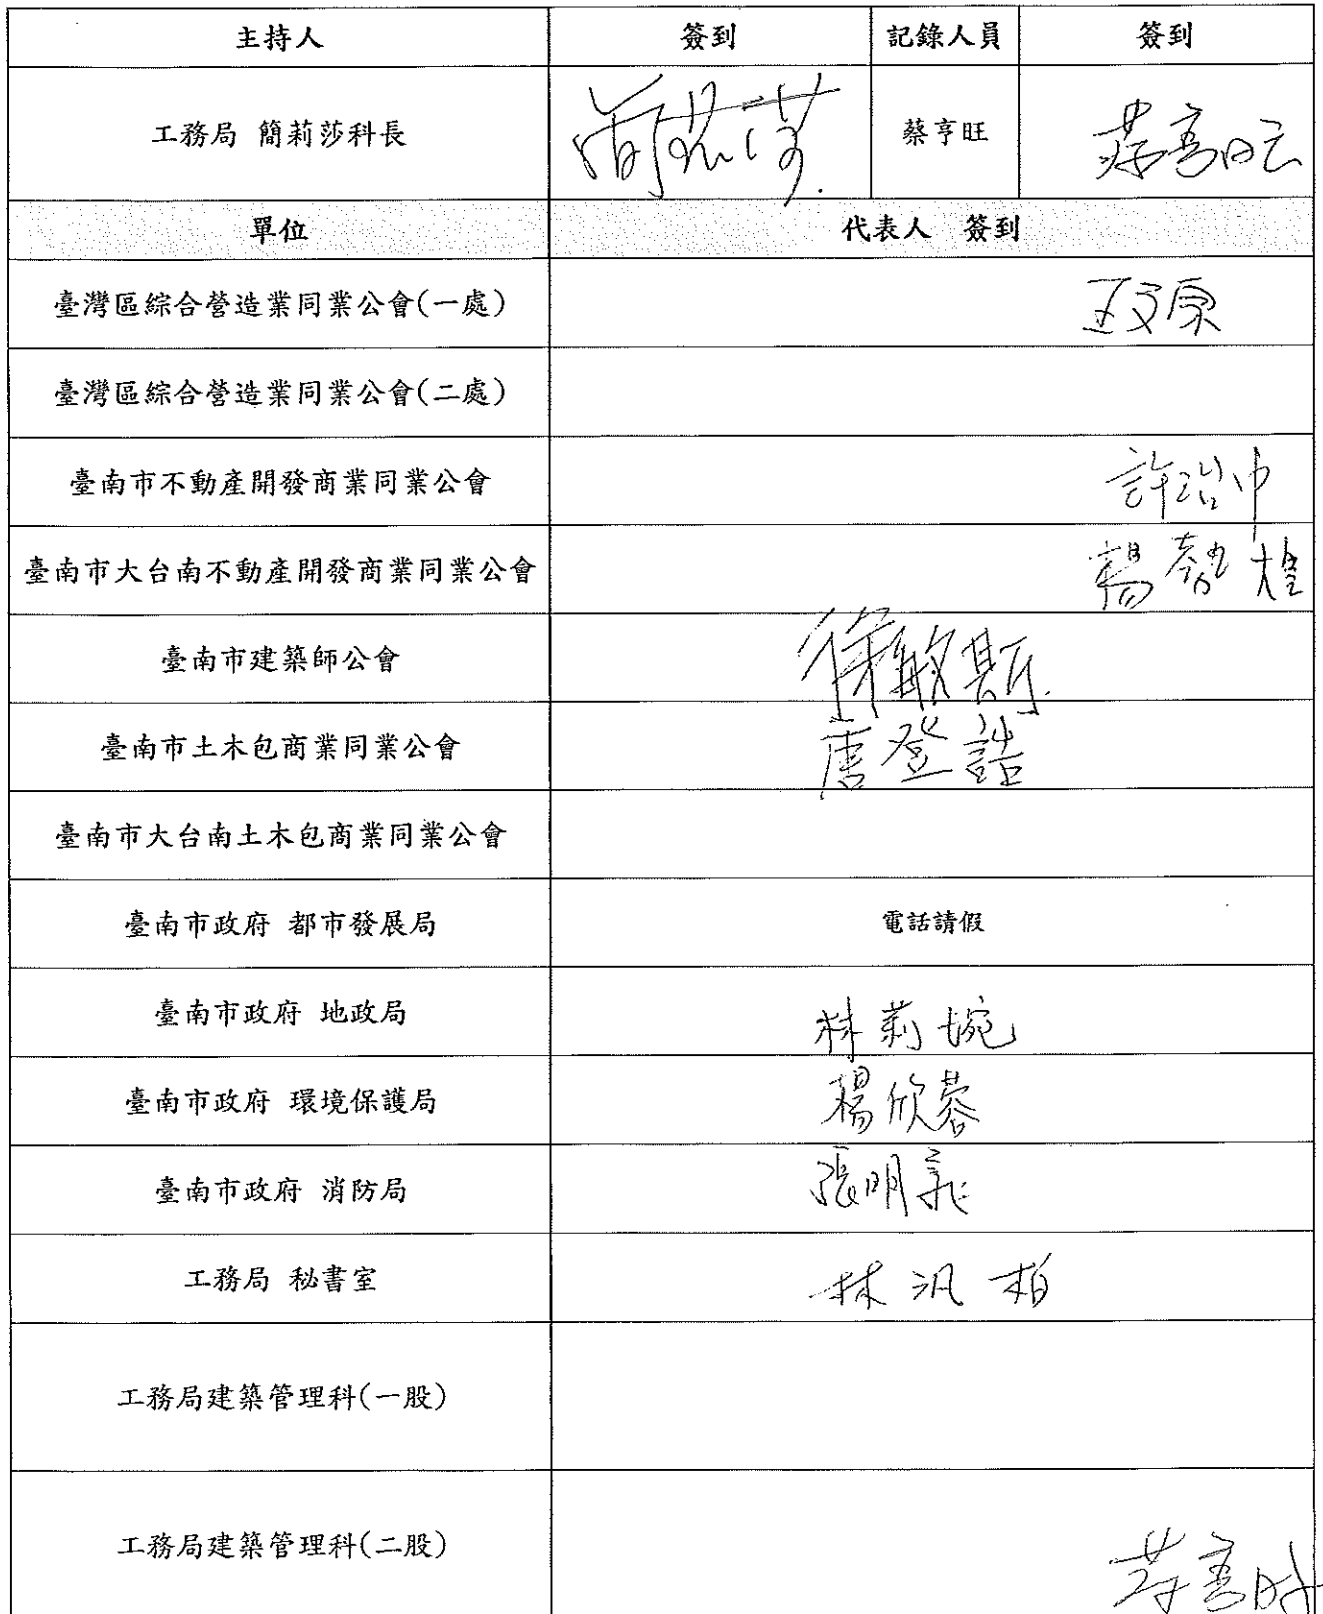 主持人 簽到 記錄人員 簽到
工務局 簡莉莎科長 簡莉莎 蔡亨旺 蔡亨旺
單位 代表人 簽到
臺灣區綜合營造業同業公會(一處) 王文原
臺灣區綜合營造業同業公會(二處)
臺南市不動產開發商業同業公會 許治中
臺南市大台南不動產開發商業同業公會 楊智煌
臺南市建築師公會 徐敏斯
臺南市土木包商業同業公會 唐登誥
臺南市大台南土木包商業同業公會
臺南市政府 都市發展局 電話請假
臺南市政府 地政局 林莉婉
臺南市政府 環境保護局 楊欣蓉
臺南市政府 消防局 張明
工務局 秘書室 林汎柏
工務局建築管理科(一股)
工務局建築管理科(二股) 蔡亨旺